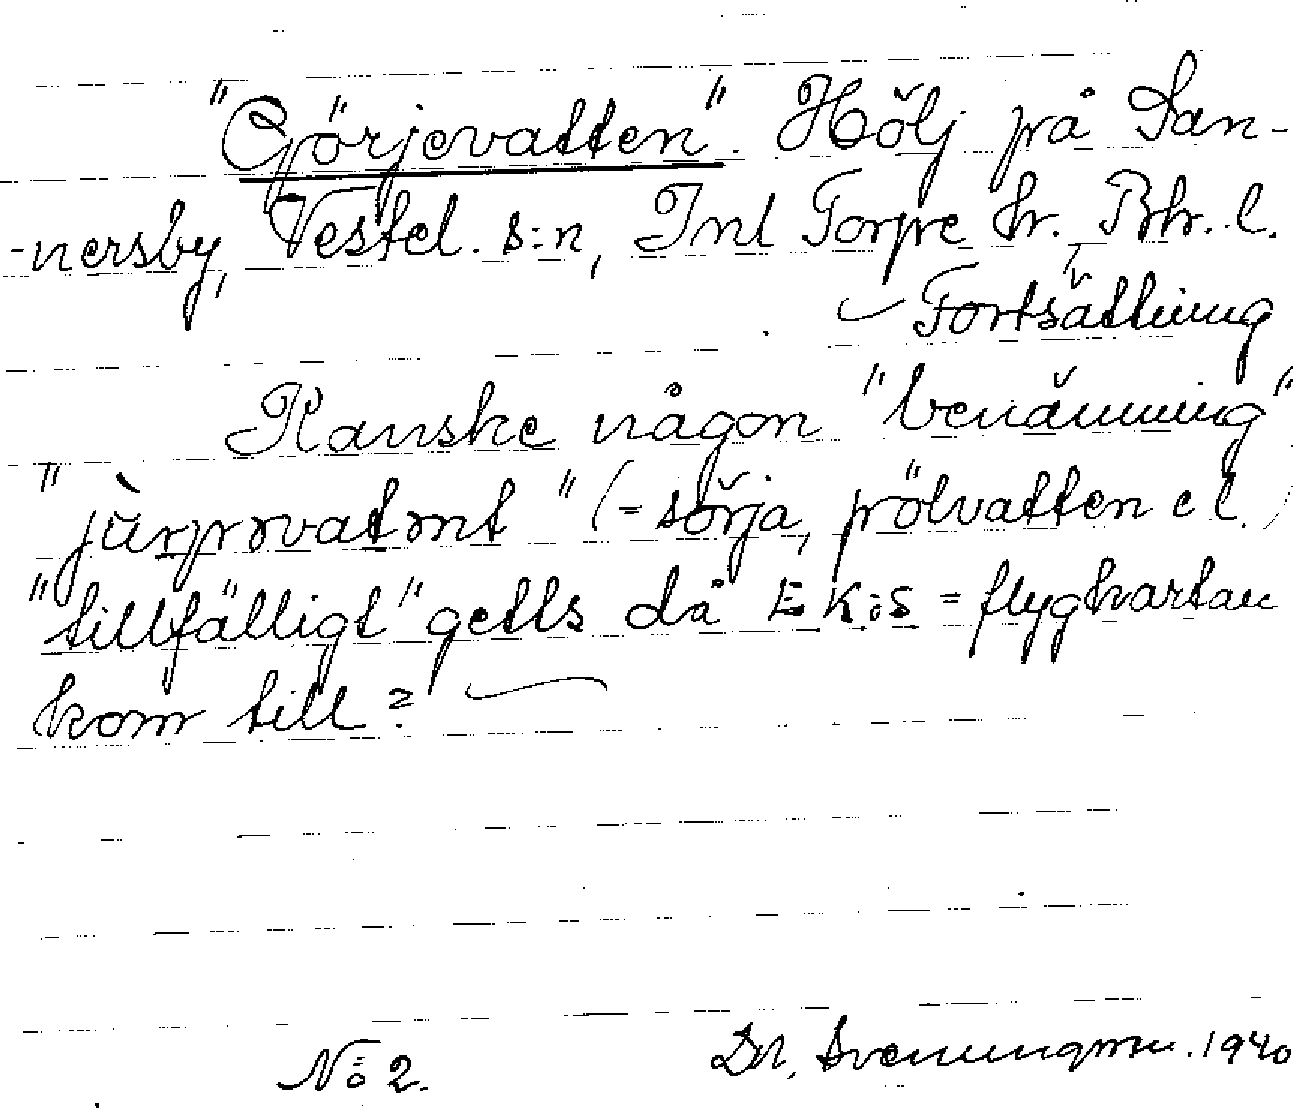 "Görjevatten". Hölj på San-
-nersby, Västel. s:n, Inl Torpe hr. Bhr. l.
Fortsättning
Kanske någon "benämning"
"jùrprovatǝnt" (= sörja, pölvatten el.)
"tillfälligt" getts då EK:s = flygkartan
kom till?
No 2. Dr. Svenungsson. 1940